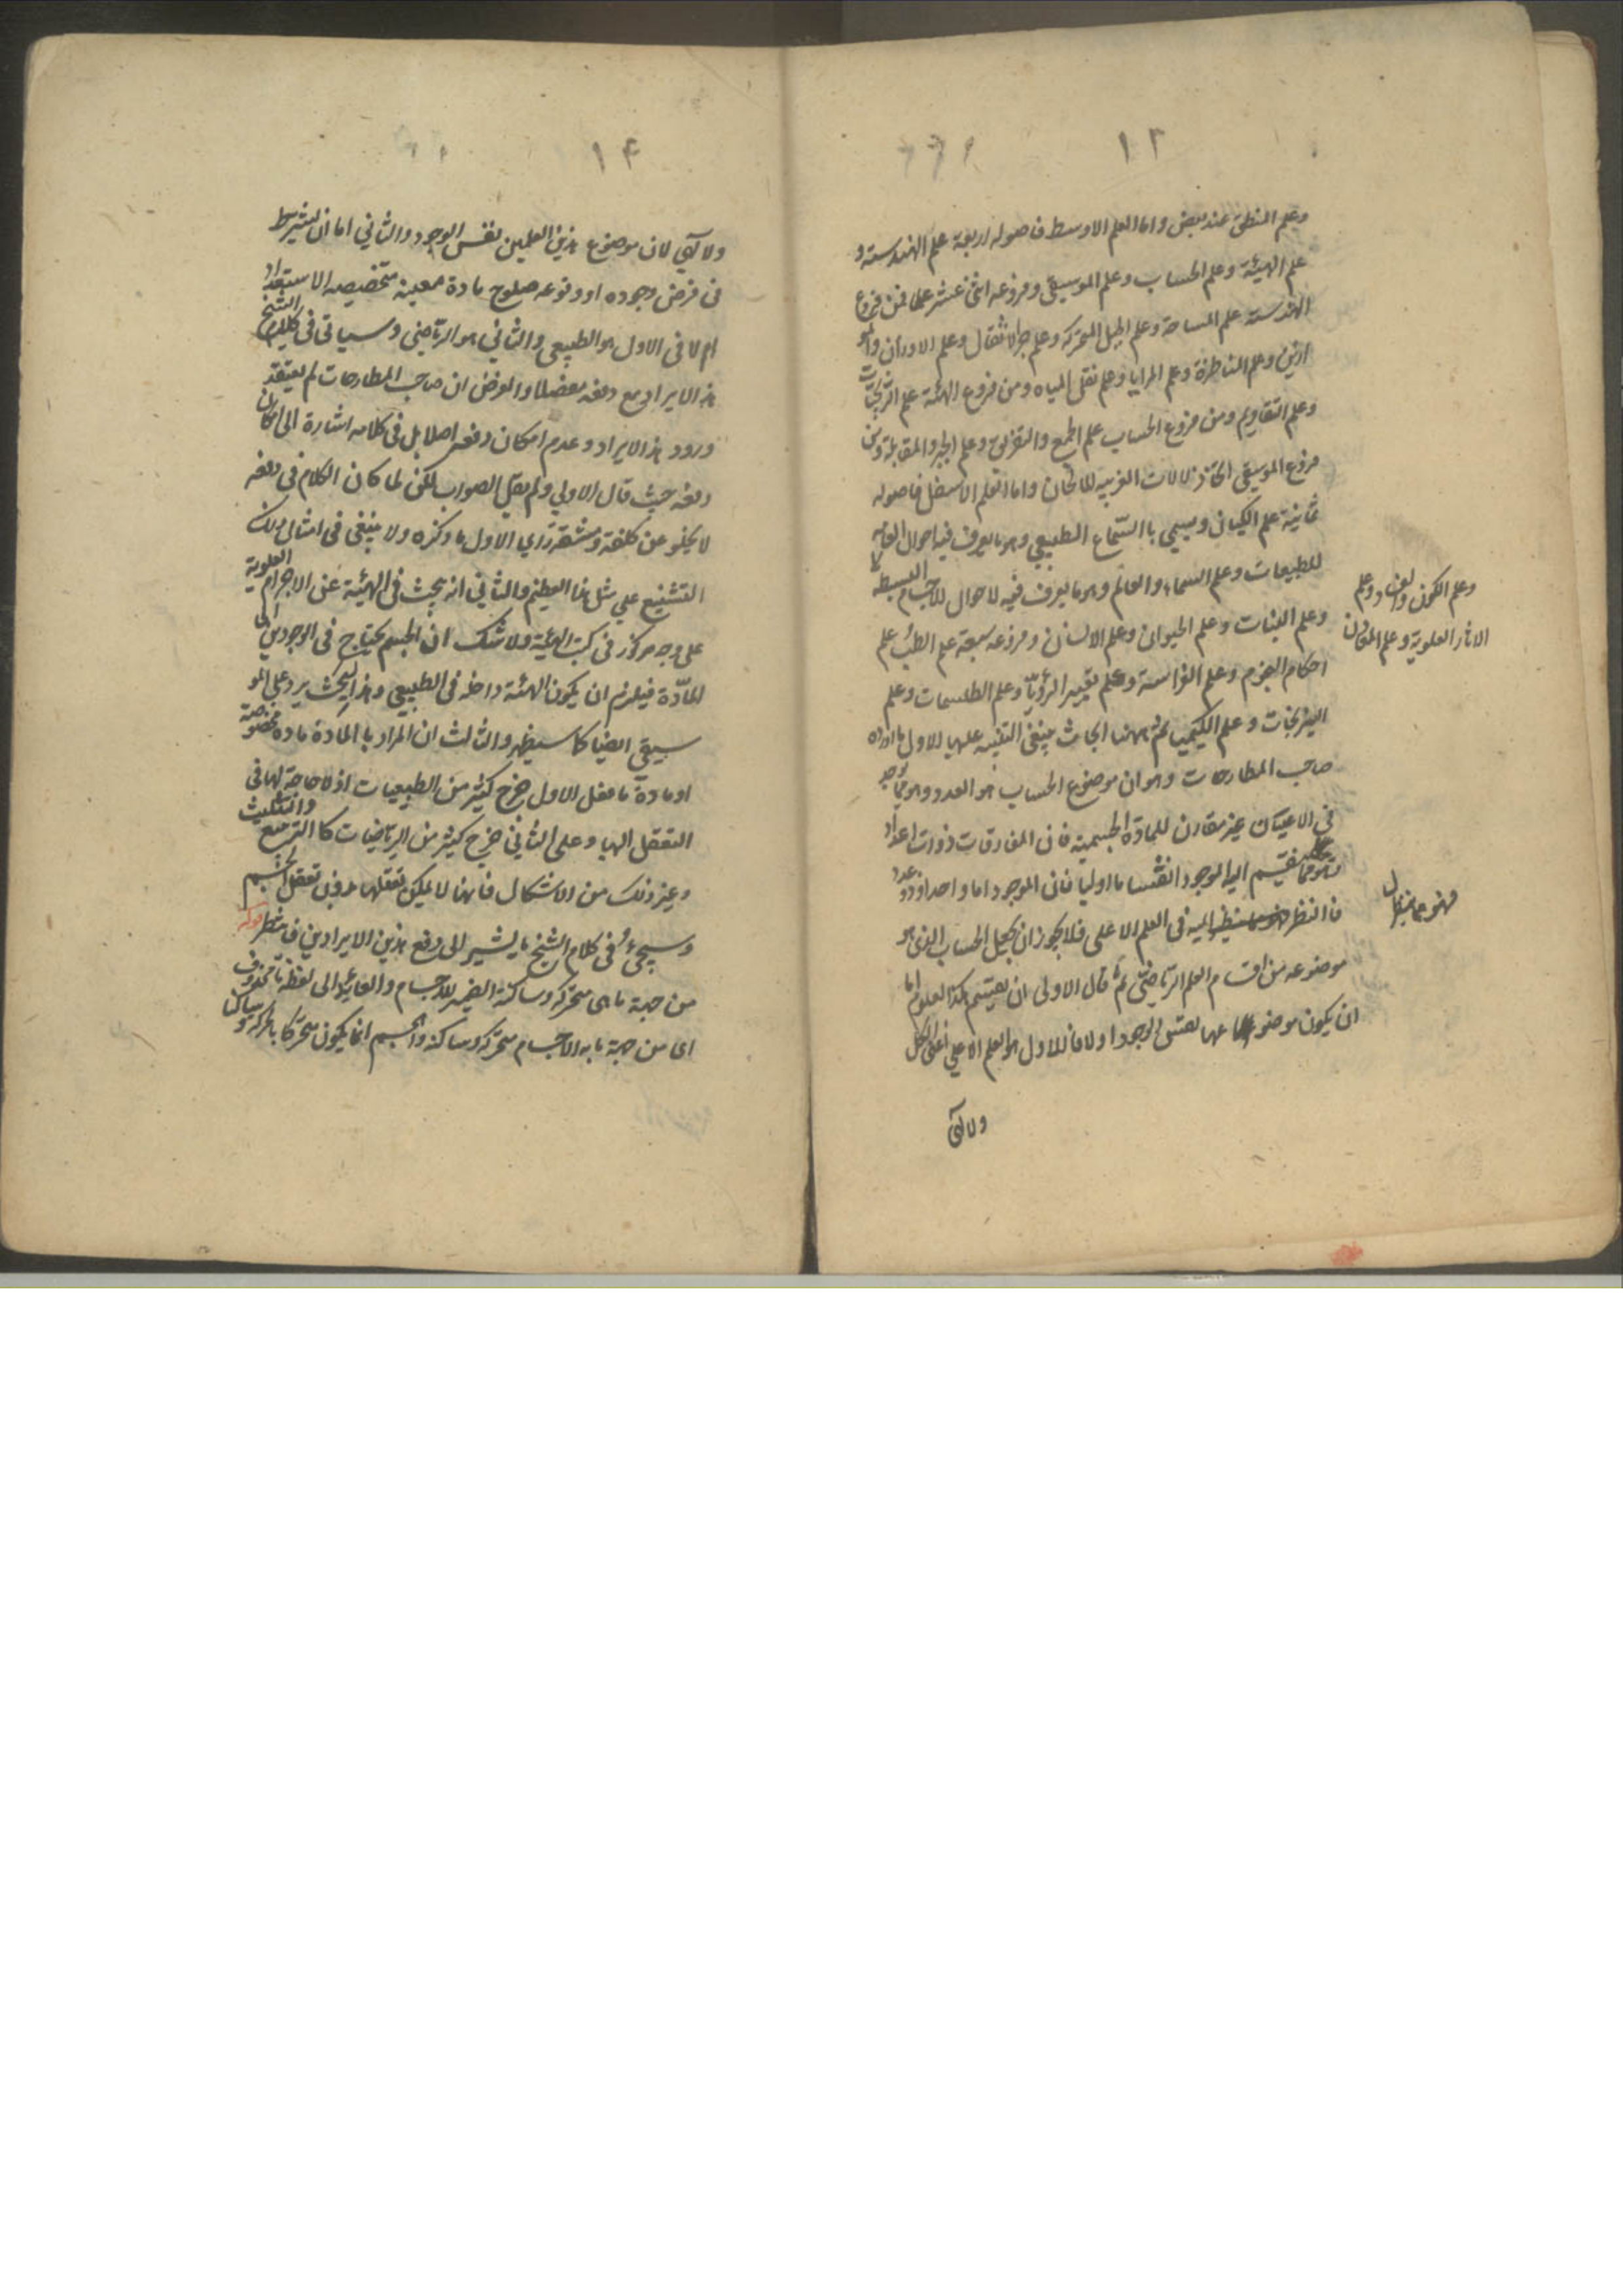 ١٣
وعلم المنطق عند بعض واما العلم الاوسط فاصوله اربعة علم الهندسة و
علم الهيئة وعلم الحساب وعلم الموسيقى وفروعه اثنى عشر علما فمن فروع
الهندسة علم المساحة وعلم الحيل المتحركه وعلم جر الاثقال وعلم الاوزان والمو
ازين وعلم المناظرة وعلم المرايا وعلم نقل المياه ومن فروع الهيئة علم الزيجات
وعلم التقاويم ومن فروع الحساب علم الجمع والتفريق وعلم الجبر والمقابلة ومن
فروع الموسيقى اتخاذ الالات الغريبه للالحان واما العلم الاسفل فاصوله
ثمانية علم الكيان ويسمى باالسماع الطبيعي وهو ما يعرف فيه احوال العامه
للطبيعات وعلم السماء والعالم وهو ما يعرف فيه لاحوال للاجسام البسيطه
وعلم الكون والفساد وعلم
الاثار العلوية وعلم المعادن
وعلم النبات وعلم الحيوان وعلم الانسان وفروعه سبعة علم الطب علم
احكام النجوم وعلم الفراسة وعلم تعبير الرؤيا وعلم الطلسمات وعلم
النيرنجات وعلم الكيميا ثم ههنا ابحاث ينبغى التنبيه عليها الاول ما اورده
صاحب المطارحات وهو ان موضوع الحساب هو العدد وهو مما يوجد
فى الاعيان غير مقارن للمادة الجسمية فان المفارقات ذوات اعداد
ينقسم اليه الموجود انقساما اوليا فان الموجود اما واحد او ذو عدد
فالنظر ينظر اليه فى العلم الاعلى فلا يجوز ان يجعل الحساب الذى هو
موضوعه من اقسام العلم الرياضى ثم قال الاولى ان يقسم هكذا العلوم اما
ان يكون موضوعها نفس الوجود اولا فالاول هو العلم الاعلى اعنى الكل
ولالهى
١٤
ولالهي لان موضوع هذين العلمين نفس الوجود والثاني اما ان يشترط
فى فرض وجوده او وقوعه صلوح مادة معينة متخصصه الاستعداد
ام لا فى الاول هو الطبيعي والثاني هو الرياضى وسياتى فى كلام الشيخ
هذا الايراد مع دفعه مفصلا والغرض ان صاحب المطارحات لم يعتقد
ورود هذا الايراد وعدم امكان دفعه اصلا بل فى كلامه اشارة الى امكان
دفعه حيث قال الاولي ولم يقل الصواب لكن لما كان الكلام فى دفعه
لا يخلو عن كلفة ومشقة راي الاول ما ذكره ولا ينبغى فى امثال ذلك
التشنيع علي مثل هذا العظيم والثاني انه يبحث فى الهيئة عن الاجرام العلوية
على وجه مركوز فى كتب الهيئة ولا شك ان الجسم يحتاج فى الوجودين الى
المادة فيلزم ان يكون الهيئة داخله فى الطبيعي وهذا البحث يرد على المو
سيقى ايضا كما سيظهر والثالث ان المراد با المادة ماده مخصوصة
او مادة ما فعلى الاول خرج كثير من الطبيعيات اذ لا حاجة لها فى
التعقل اليها وعلى الثاني خرج كثير من الرياضيات كا التربيع والتثليث
وغير ذلك من الاشكال فانها لا يمكن تعقلها بدون تعقل الجسم
وسيجئ فى كلام الشيخ ما يشير الى دفع هذين الايرادين فانتظر قوله
من جهة ما هى متحركه وساكنة الضمير للاجسام والعايد الى لفظة ما محذوف
اى من جهة ما به الاجسام متحركه وساكنه والجسم انما يكون متحركا بالحركة وساكنا